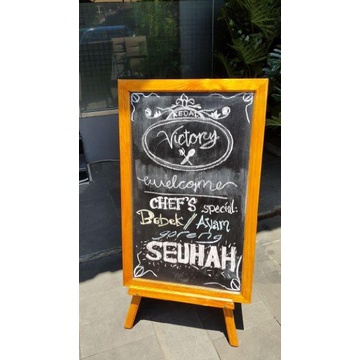 KEDAI
Victory
welcome
CHEF'S special:
Bebek // Ayam
goreng
SEUHAH